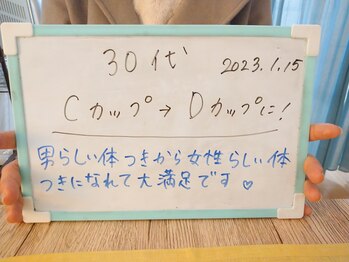 30代 2023.1.15
Cカップ→Dカップに!
男らしい体つきから女性らしい体
つきになれて大満足です♡